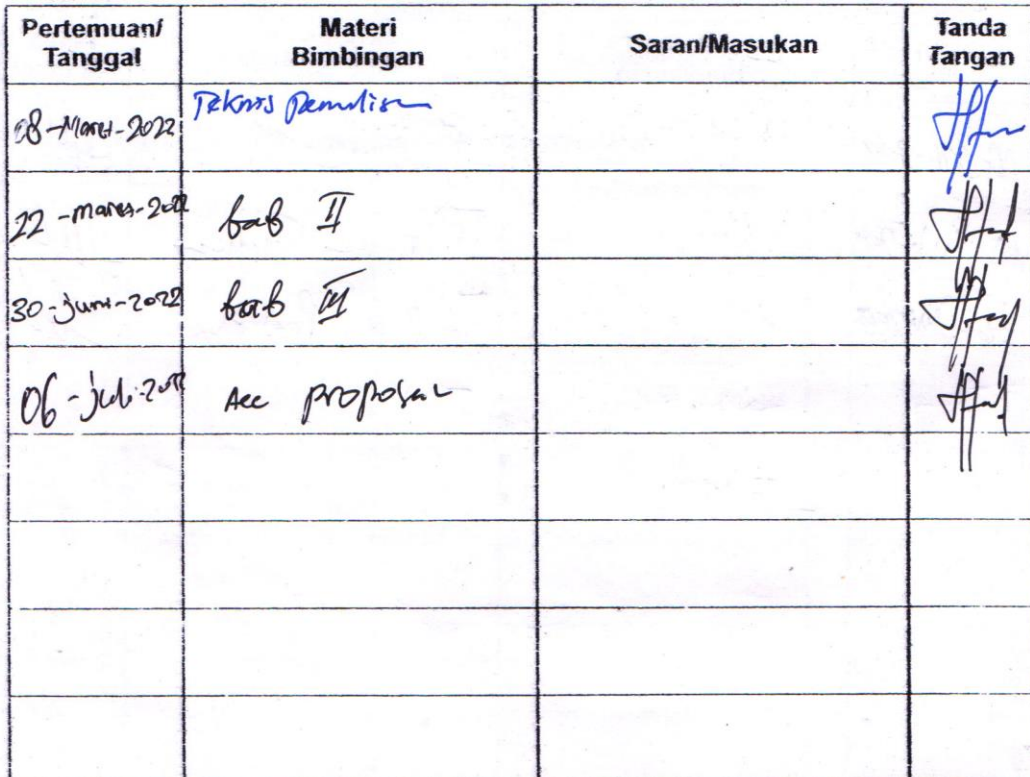 Pertemuan/ Tanggal Materi Bimbingan Saran/Masukan Tanda Tangan
08-Maret-2022 Teknis Penulisan
22-Maret-2022 bab II
30-Juni-2022 bab III
06-Juli-2022 Acc proposal